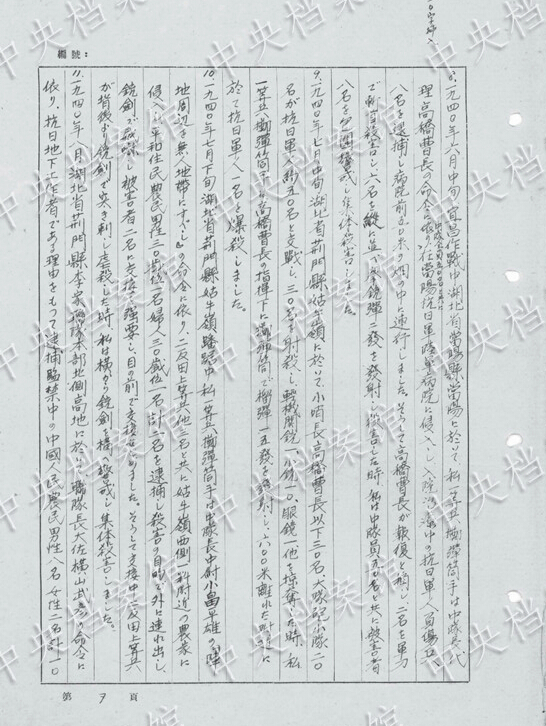 編號：
8. 一九四〇年六月中旬宜昌作戦中湖北省當陽縣當陽に於いて、私一等兵擲彈筒手は中隊長代
理高橋曹長の命令に依り當陽抗日軍陸軍病院に侵入し入院治療中の抗日軍人負傷兵
八名を逮捕し病院前の畑の中に連行しました。そうして高橋曹長が報復と称し二名を軍刀
で斬り殺害し六名を縦に並べ小銃彈二發を發射し殺害した時、私は中隊員五〇名と共に被害者
八名を包囲警戒し集体殺害しました。
9. 一九四〇年七月中旬湖北省荊門縣姑牛嶺に於いて、小哨長高橋曹長以下三〇名、大隊砲小隊二〇
名が抗日軍人約五〇名と交戦し、三〇名を射殺し、輕機関銃一、小銃一〇、眼鏡一他を掠奪した時、私
一等兵擲彈筒手は高橋曹長の指揮下に擲彈筒で榴彈一五發を發射し、六〇〇米離れた
於て抗日軍人一名を爆殺しました。
10. 一九四〇年七月下旬湖北省荊門縣姑牛嶺駐屯中、私一等兵擲彈筒手は中隊長中尉小畠平雄の「陣
地周辺を無人地帯にすべし」の命令に依り、反田上等兵他一名と共に姑牛嶺西側一粁附近の農家に
侵入し平和住民農民男性三〇歳位一名婦人三〇歳位一名計二名を逮捕し殺害の目的で外に連れ出し、
銃劍で威嚇し被害者二名に交接を強要し、目の前で交接せしめました。そうして交接中を反田上等兵
が背後より銃劍で突き刺し虐殺した時、私は横から銃劍を構へ警戒し集体殺害しました。
11. 一九四〇年八月湖北省荊門縣李家 聯隊本部北側高地に於いて聯隊長大佐横山武彦の命令に
依り、抗日地下工作者である理由をもって逮捕監禁中の中國人民農民男性八名女性二名計一〇
第 7 頁
中央档案馆